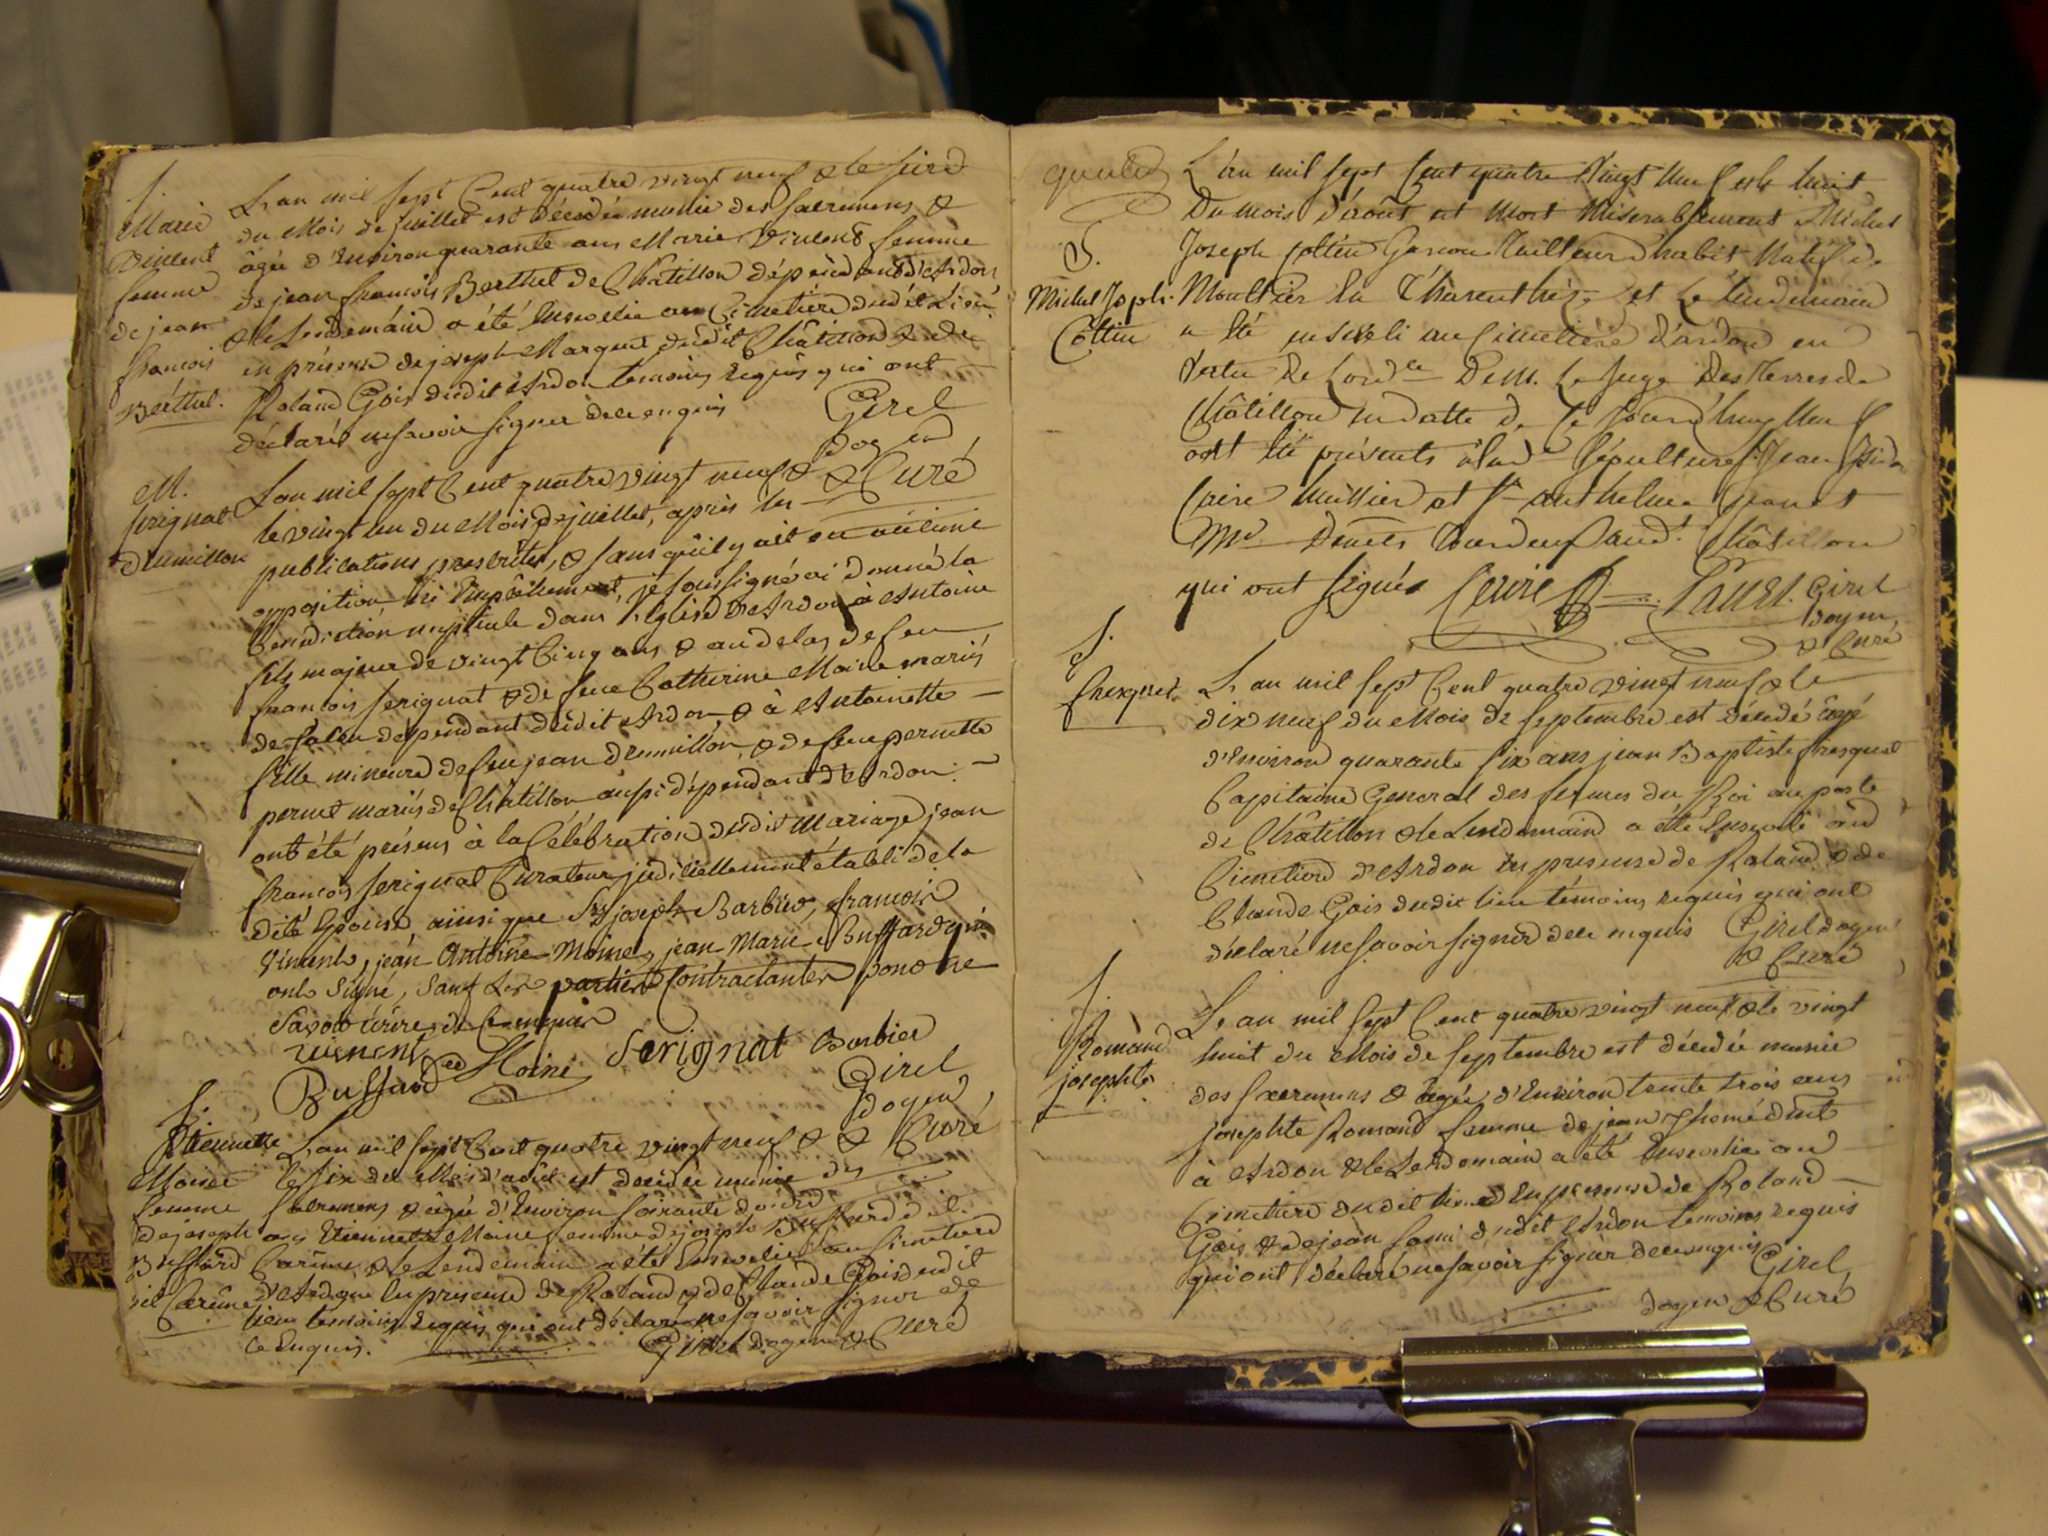 S.
Marie
Vincent
femme
de jean
françois
Berthet.
L'an mil sept Cent quatre vingt neuf & le
du Mois de juillet est décédée munie des sacremens, &
âgée d'Environ quarante ans Marie Vincent femme
de jean françois Berthet de Châtillon dépendant d'Ardon
& le Lendemain a été Ensevelie au Cimetière dudit Lieu
en présence de joseph Marquet dudit Châtillon & de
Roland Gois dudit Ardon témoins requis qui ont
déclaré ne savoir signer de ce enquis
Girel
doyen
& Curé
M.
serignat
drumillon
L'an mil sept Cent quatre vingt neuf &
le vingt un du Mois de juillet, après les
publications prescrites, & sans qu'il y ait eu aucune
opposition ni Empêchement, je soussigné ai donné la
bénédiction nuptiale dans l'Eglise d'Ardon à Antoine
fils majeur de vingt Cinq ans & au delas de feu
françois serignat & de feue Catherine Moine mariés
de dépendant dudit Ardon, & à Antoinette
fille mineure de feu jean drumillon & de feue pernette
pernet mariés de Châtillon aussi dépendant d'Ardon.
ont été présens à la Célébration dudit Mariage jean
françois serignat Curateur judiciellement établi de la
dite Epouse, ainsi que joseph Barbier, françois
Vincent, jean Antoine Moine, jean Marie Buffard qui
ont signé, sauf Les parties Contractantes pour ne
savoir écrire de Ce enquis
vincent
Moine
Serignat
Barbier
Buffard
Girel
doyen
& Curé
S.
Etiennette
Moine
femme
de joseph
Buffard
dit Carême
L'an mil sept Cent quatre vingt neuf &
le six du Mois d'août est décédée munie des
sacremens & âgée d'Environ soixante
ans Etiennette Moine femme de joseph Buffard dit
Carême & le Lendemain a été Ensevelie au Cimetière
d'Ardon En présence de Roland & de Claude Gois dudit
lieu témoins requis qui ont déclaré ne savoir signer de
ce Enquis.
Girel doyen & Curé
S.
Michel Joseph
Cottin
L'an mil sept Cent quatre Vingt Neuf et le huit
Du mois d'août est Mort Misérablement Michel
Joseph Cottin Garçon Tailleur d'habit Natif de
et Le lendemain
a été enseveli au Cimetière d'ardon en
Vertu De De M. Le Juge Des Terres de
Châtillon en datte de Ce Jourd'huy Neuf
ont été présents à la de Sépulture Jean
huissier et Sr anthelme
Md Châtillon
qui ont Signés
Girel
doyen
& Curé
S.
fresquet
L'an mil sept Cent quatre vingt neuf & le
dix neuf du Mois de septembre est décédé âgé
d'Environ quarante six ans jean Baptiste fresquet
Capitaine General des fermes du Roi au poste
de Châtillon & le Lendemain a été Enseveli au
Cimetière d'Ardon En presence de Roland & de
Claude Gois dudit lieu témoins requis qui ont
déclaré ne savoir signer de ce enquis
Girel doyen
& Curé
S.
Romand
josephte
L'an mil sept Cent quatre vingt neuf & le vingt
huit du Mois de septembre est décédée munie
des sacremens & âgée d'Environ trente trois ans
josephte Romand femme de jean
à Ardon & le Lendemain a été Ensevelie au
Cimetière dudit lieu En presence de Roland
Gois & de jean dudit Ardon témoins requis
qui ont déclaré ne savoir signer de ce enquis
Girel
doyen & Curé